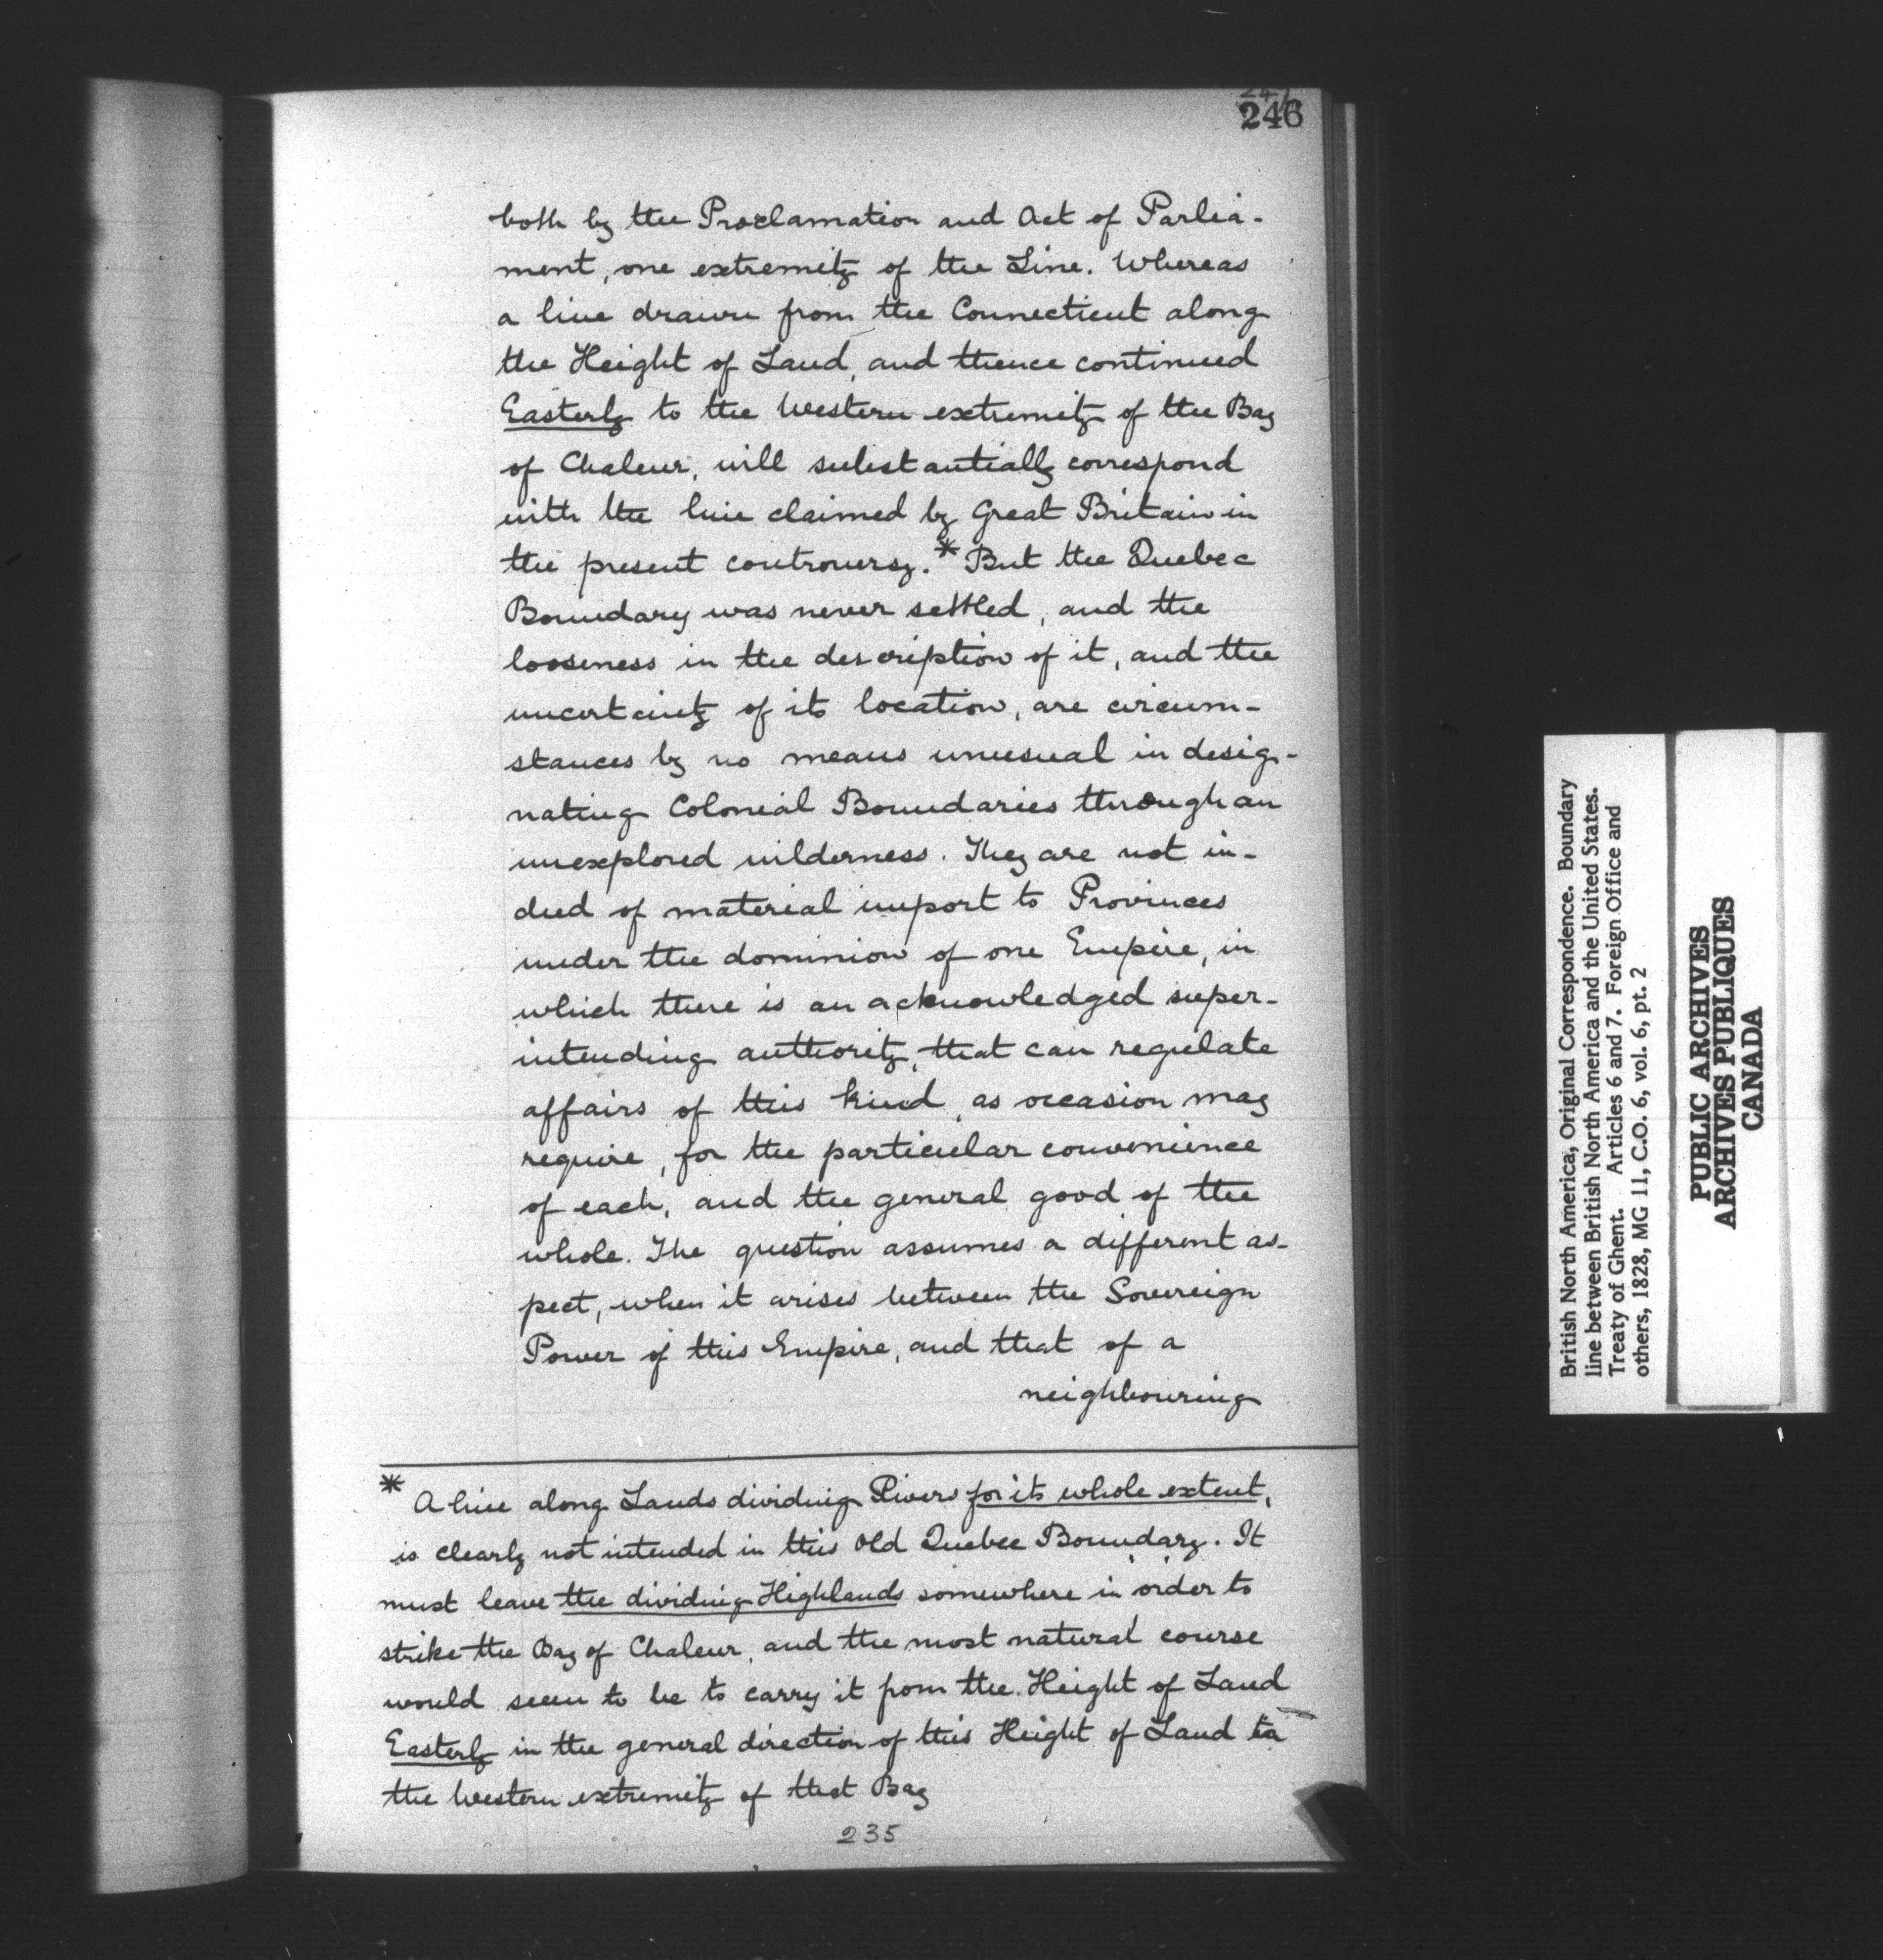 246
both by the Proclamation and Act of Parlia-
ment, one extremity of the Line. Whereas
a line drawn from the Connecticut along
the Height of Land, and thence continued
Easterly to the Western extremity of the Bay
of Chaleur, will substantially correspond
with the line claimed by Great Britain in
the present controversy.* But the Quebec
Boundary was never settled, and the
looseness in the description of it, and the
uncertainty of its location, are circum-
stances by no means unusual in desig-
nating Colonial Boundaries through an
unexplored wilderness. They are not in-
deed of material import to Provinces
under the dominion of one Empire, in
which there is an acknowledged super-
intending authority, that can regulate
affairs of this kind, as occasion may
require, for the particular convenience
of each, and the general good of the
whole. The question assumes a different as-
pect, when it arises between the Sovereign
Power of this Empire, and that of a
neighbouring
* A line along Lands dividing Rivers for its whole extent,
is clearly not intended in this Old Quebec Boundary. It
must leave the dividing Highlands somewhere in order to
strike the Bay of Chaleur, and the most natural course
would seem to be to carry it from the Height of Land
Easterly in the general direction of this Height of Land to
the Western extremity of that Bay
235
British North America, Original Correspondence. Boundary
line between British North America and the United States.
Treaty of Ghent. Articles 6 and 7. Foreign Office and
others, 1828, MG 11, C.O. 6, vol. 6, pt. 2
PUBLIC ARCHIVES
ARCHIVES PUBLIQUES
CANADA